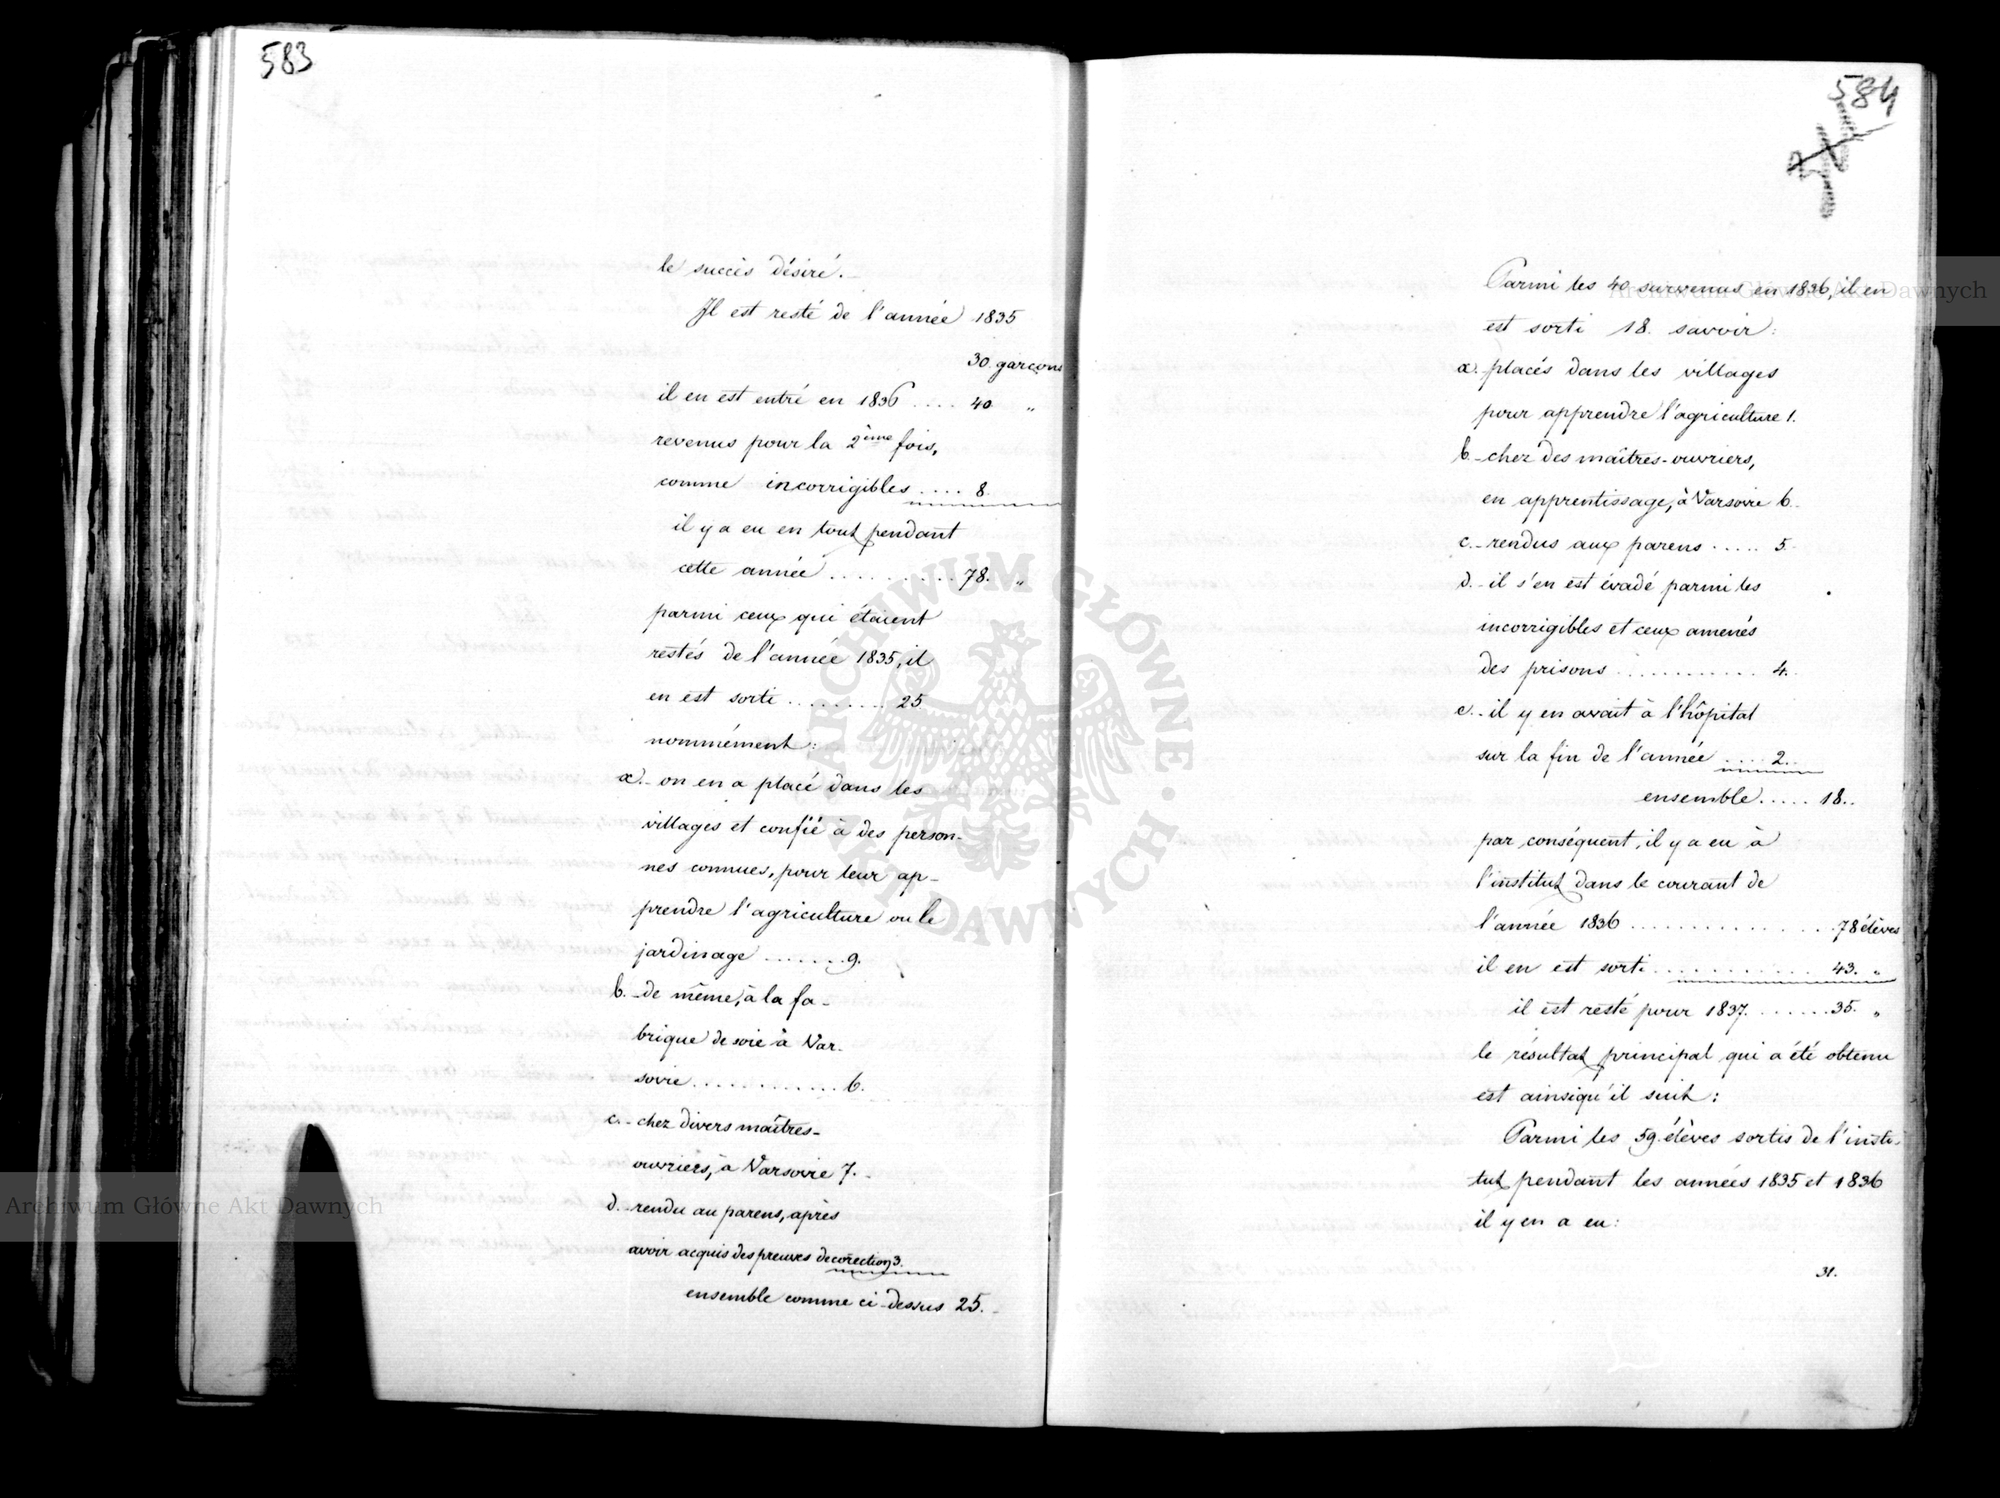 583
le succès désiré.
Il est resté de l'année 1835
30 garçons
il en est entré en 1836 .... 40 "
revenus pour la 2ème fois,
comme incorrigibles .... 8.
il y a eu en tout pendant
cette année .......... 78. "
parmi ceux qui étaient
restés de l'année 1835, il
en est sorti ......... 25
nommément:
a.- on en a placé dans les
villages et confié à des person-
nes connues, pour leur ap-
prendre l'agriculture ou le
jardinage ....... 9.
b.- de même, à la fa-
brique de soie à Var-
sovie ............ 6.
c.- chez divers maîtres-
ouvriers, à Varsovie 7.-
d.- rendu au parens, après
avoir acquis des preuves de corection 3.
ensemble comme ci-dessus 25.-
584
Parmi les 40 survenus en 1836, il en
est sorti 18. savoir:
a.- placés dans les villages
pour apprendre l'agriculture 1.
b.- chez des maîtres-ouvriers,
en apprentissage, à Varsovie 6.-
c.- rendus aux parens ..... 5.-
d.- il s'en est évadé parmi les
incorrigibles et ceux amenés
des prisons ........... 4.-
e.- il y en avait à l'hôpital
sur la fin de l'année .... 2.-
ensemble ..... 18.-
par conséquent, il y a eu à
l'institut dans le courant de
l'année 1836 ................ 78 élèves
il en est sorti ............ 43. "
il est resté pour 1837. ...... 35. "
le résultat principal qui a été obtenu
est ainsi qu'il suit:
Parmi les 59. élèves sortis de l'insti-
tut pendant les années 1835 et 1836
il y en a eu:
31.
Archiwum Główne Akt Dawnych
Archiwum Główne Akt Dawnych
ARCHIWUM GŁÓWNE · AKT DAWNYCH ·